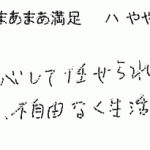 まあまあ満足 ハ やや
心して任せられ
不自由なく生活